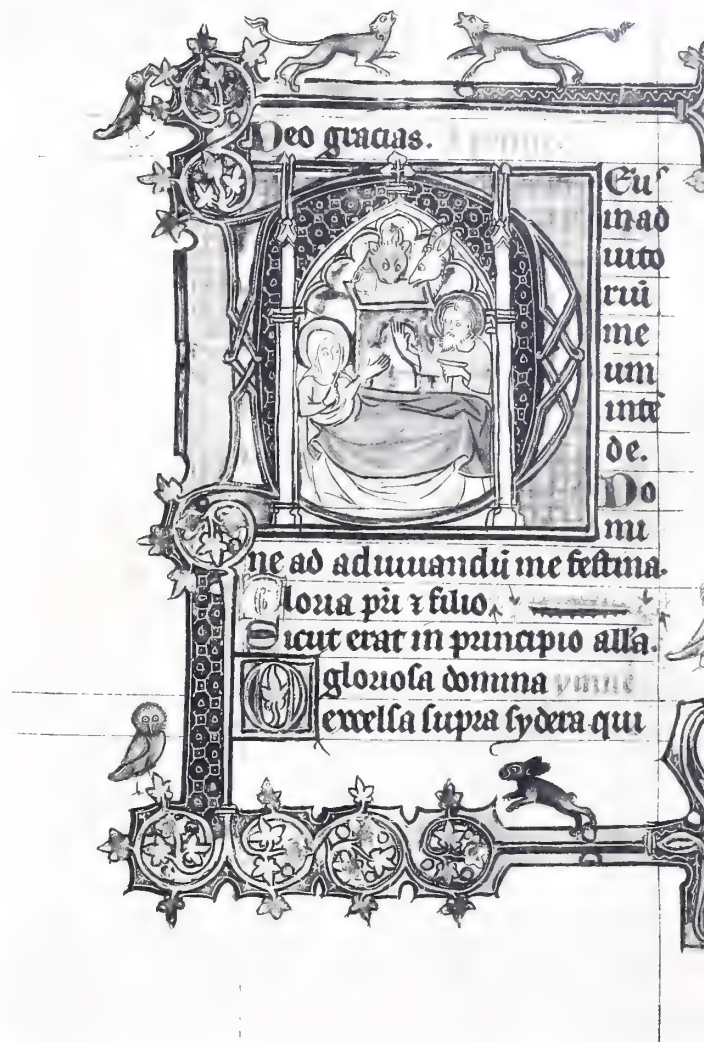 Deo gracias.
Eus
in ad
iuto
riū
me
um
intē
de.
Do
mi
ne ad adiuuandū me festina.
Gloria pri ⁊ filio
Sicut erat in principio alla.
O gloriosa domina ymne
excelsa supra sydera qui